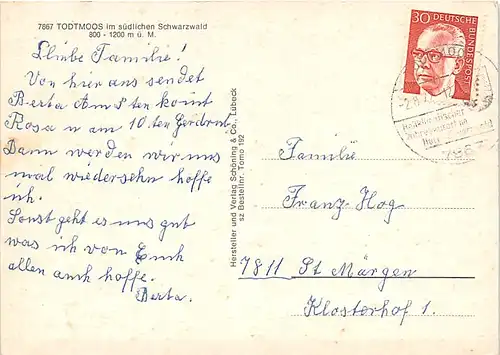 7867 TODTMOOS im südlichen Schwarzwald
800 - 1200 m ü. M.
Lliebe Familie!
Von hier aus sendet
Berta Am 8 ten komt
Rosa u am 10. ten Gerdrout
Dann werden wir uns
mal wiedersehn hoffe
ich.
Sonst geht es uns gut
was ich von Euch
allen auch hoffe.
Berta.
Hersteller und Verlag Schöning & Co., Lübeck
sz Bestellnr. Tomo 192
30 DEUTSCHE
BUNDESPOST
Familie
Franz Hog
7811 St Märgen
Klosterhof 1.